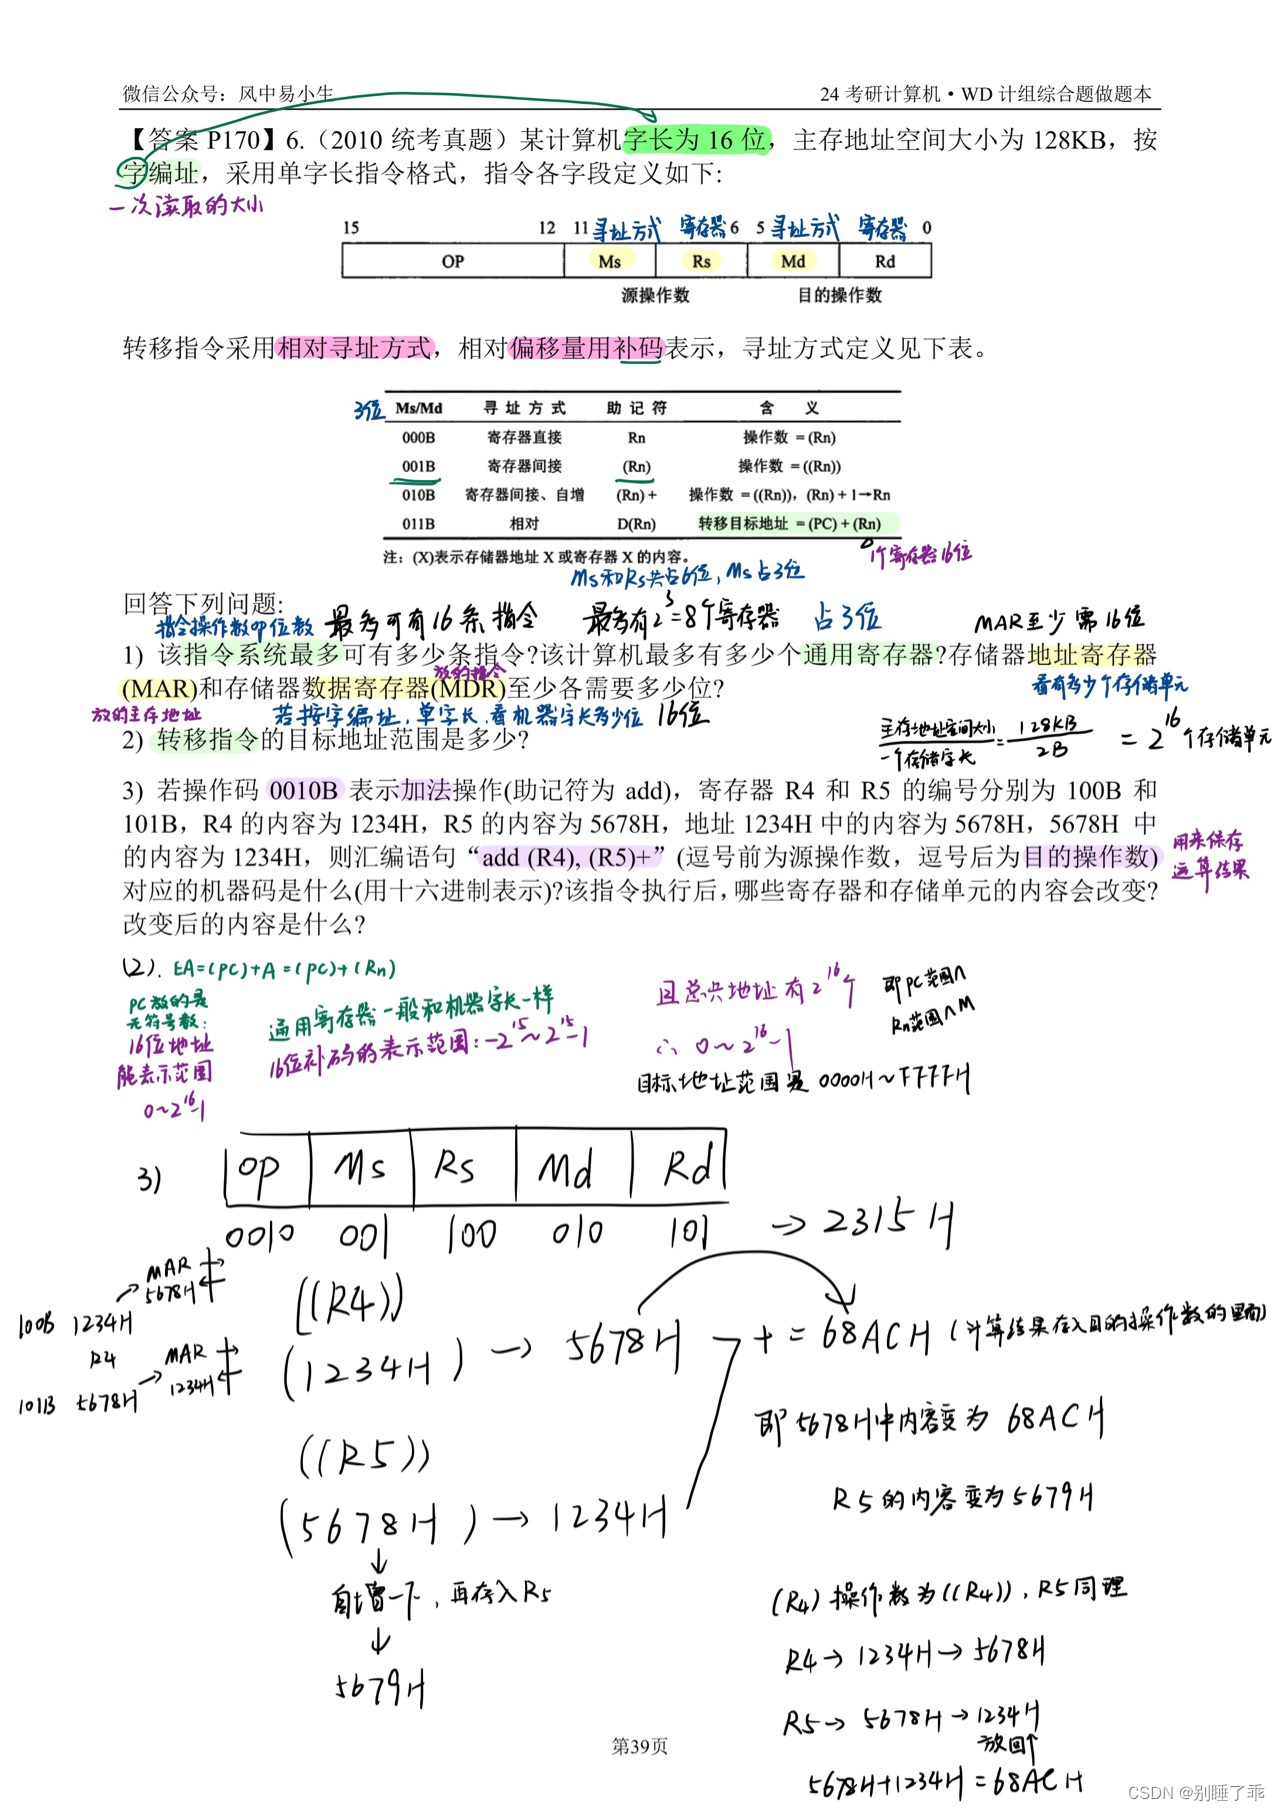 微信公众号：风中易小生
24 考研计算机·WD 计组综合题做题本
【答案 P170】6.（2010 统考真题）某计算机字长为 16 位，主存地址空间大小为 128KB，按
字编址，采用单字长指令格式，指令各字段定义如下:
一次读取的大小
15 12 11 寻址方式 寄存器 6 5 寻址方式 寄存器 0
OP Ms Rs Md Rd
源操作数 目的操作数
转移指令采用相对寻址方式，相对偏移量用补码表示，寻址方式定义见下表。
3位 Ms/Md 寻址方式 助记符 含 义
000B 寄存器直接 Rn 操作数 =(Rn)
001B 寄存器间接 (Rn) 操作数 =((Rn))
010B 寄存器间接、自增 (Rn)+ 操作数 =((Rn))，(Rn)+1→Rn
011B 相对 D(Rn) 转移目标地址 =(PC)+(Rn)
注：(X)表示存储器地址 X 或寄存器 X 的内容。
1个寄存器16位
Ms和Rs共占6位，Ms占3位
回答下列问题:
指令操作数op位数 最多可有16条指令 最多有2³=8个寄存器 占3位 MAR至少需16位
1) 该指令系统最多可有多少条指令?该计算机最多有多少个通用寄存器?存储器地址寄存器
放的指令
(MAR)和存储器数据寄存器(MDR)至少各需要多少位?
看有多少个存储单元
放的主存地址 若按字编址，单字长，看机器字长多少位 16位
2) 转移指令的目标地址范围是多少?
主存地址空间大小/一个存储字长 = 128KB/2B = 2¹⁶个存储单元
3) 若操作码 0010B 表示加法操作(助记符为 add)，寄存器 R4 和 R5 的编号分别为 100B 和
101B，R4 的内容为 1234H，R5 的内容为 5678H，地址 1234H 中的内容为 5678H，5678H 中
的内容为 1234H，则汇编语句“add (R4), (R5)+”(逗号前为源操作数，逗号后为目的操作数)
用来保存
运算结果
对应的机器码是什么(用十六进制表示)?该指令执行后,哪些寄存器和存储单元的内容会改变?
改变后的内容是什么?
(2). EA=(PC)+A=(PC)+(Rn)
PC放的是
无符号数:
16位地址
能表示范围
0~2¹⁶-1
通用寄存器一般和机器字长一样
16位补码的表示范围：-2¹⁵~2¹⁵-1
且总共地址有2¹⁶个
∴ 0~2¹⁶-1
即PC范围∩
Rn范围∩M
目标地址范围是 0000H~FFFFH
3)
OP Ms Rs Md Rd
0010 001 100 010 101 → 2315H
MAR
5678H
100B 1234H
R4
MAR
1234H
101B 5678H
((R4))
(1234H) → 5678H + = 68ACH (计算结果存入目的操作数的里面)
即5678H中内容变为 68ACH
((R5))
R5的内容变为5679H
(5678H) → 1234H
↓
自增一下，再存入R5
↓
5679H
(R4)操作数为((R4))，R5同理
R4→1234H→5678H
R5→5678H→1234H
放回↑
5678H+1234H=68ACH
第39页
CSDN @别睡了乖